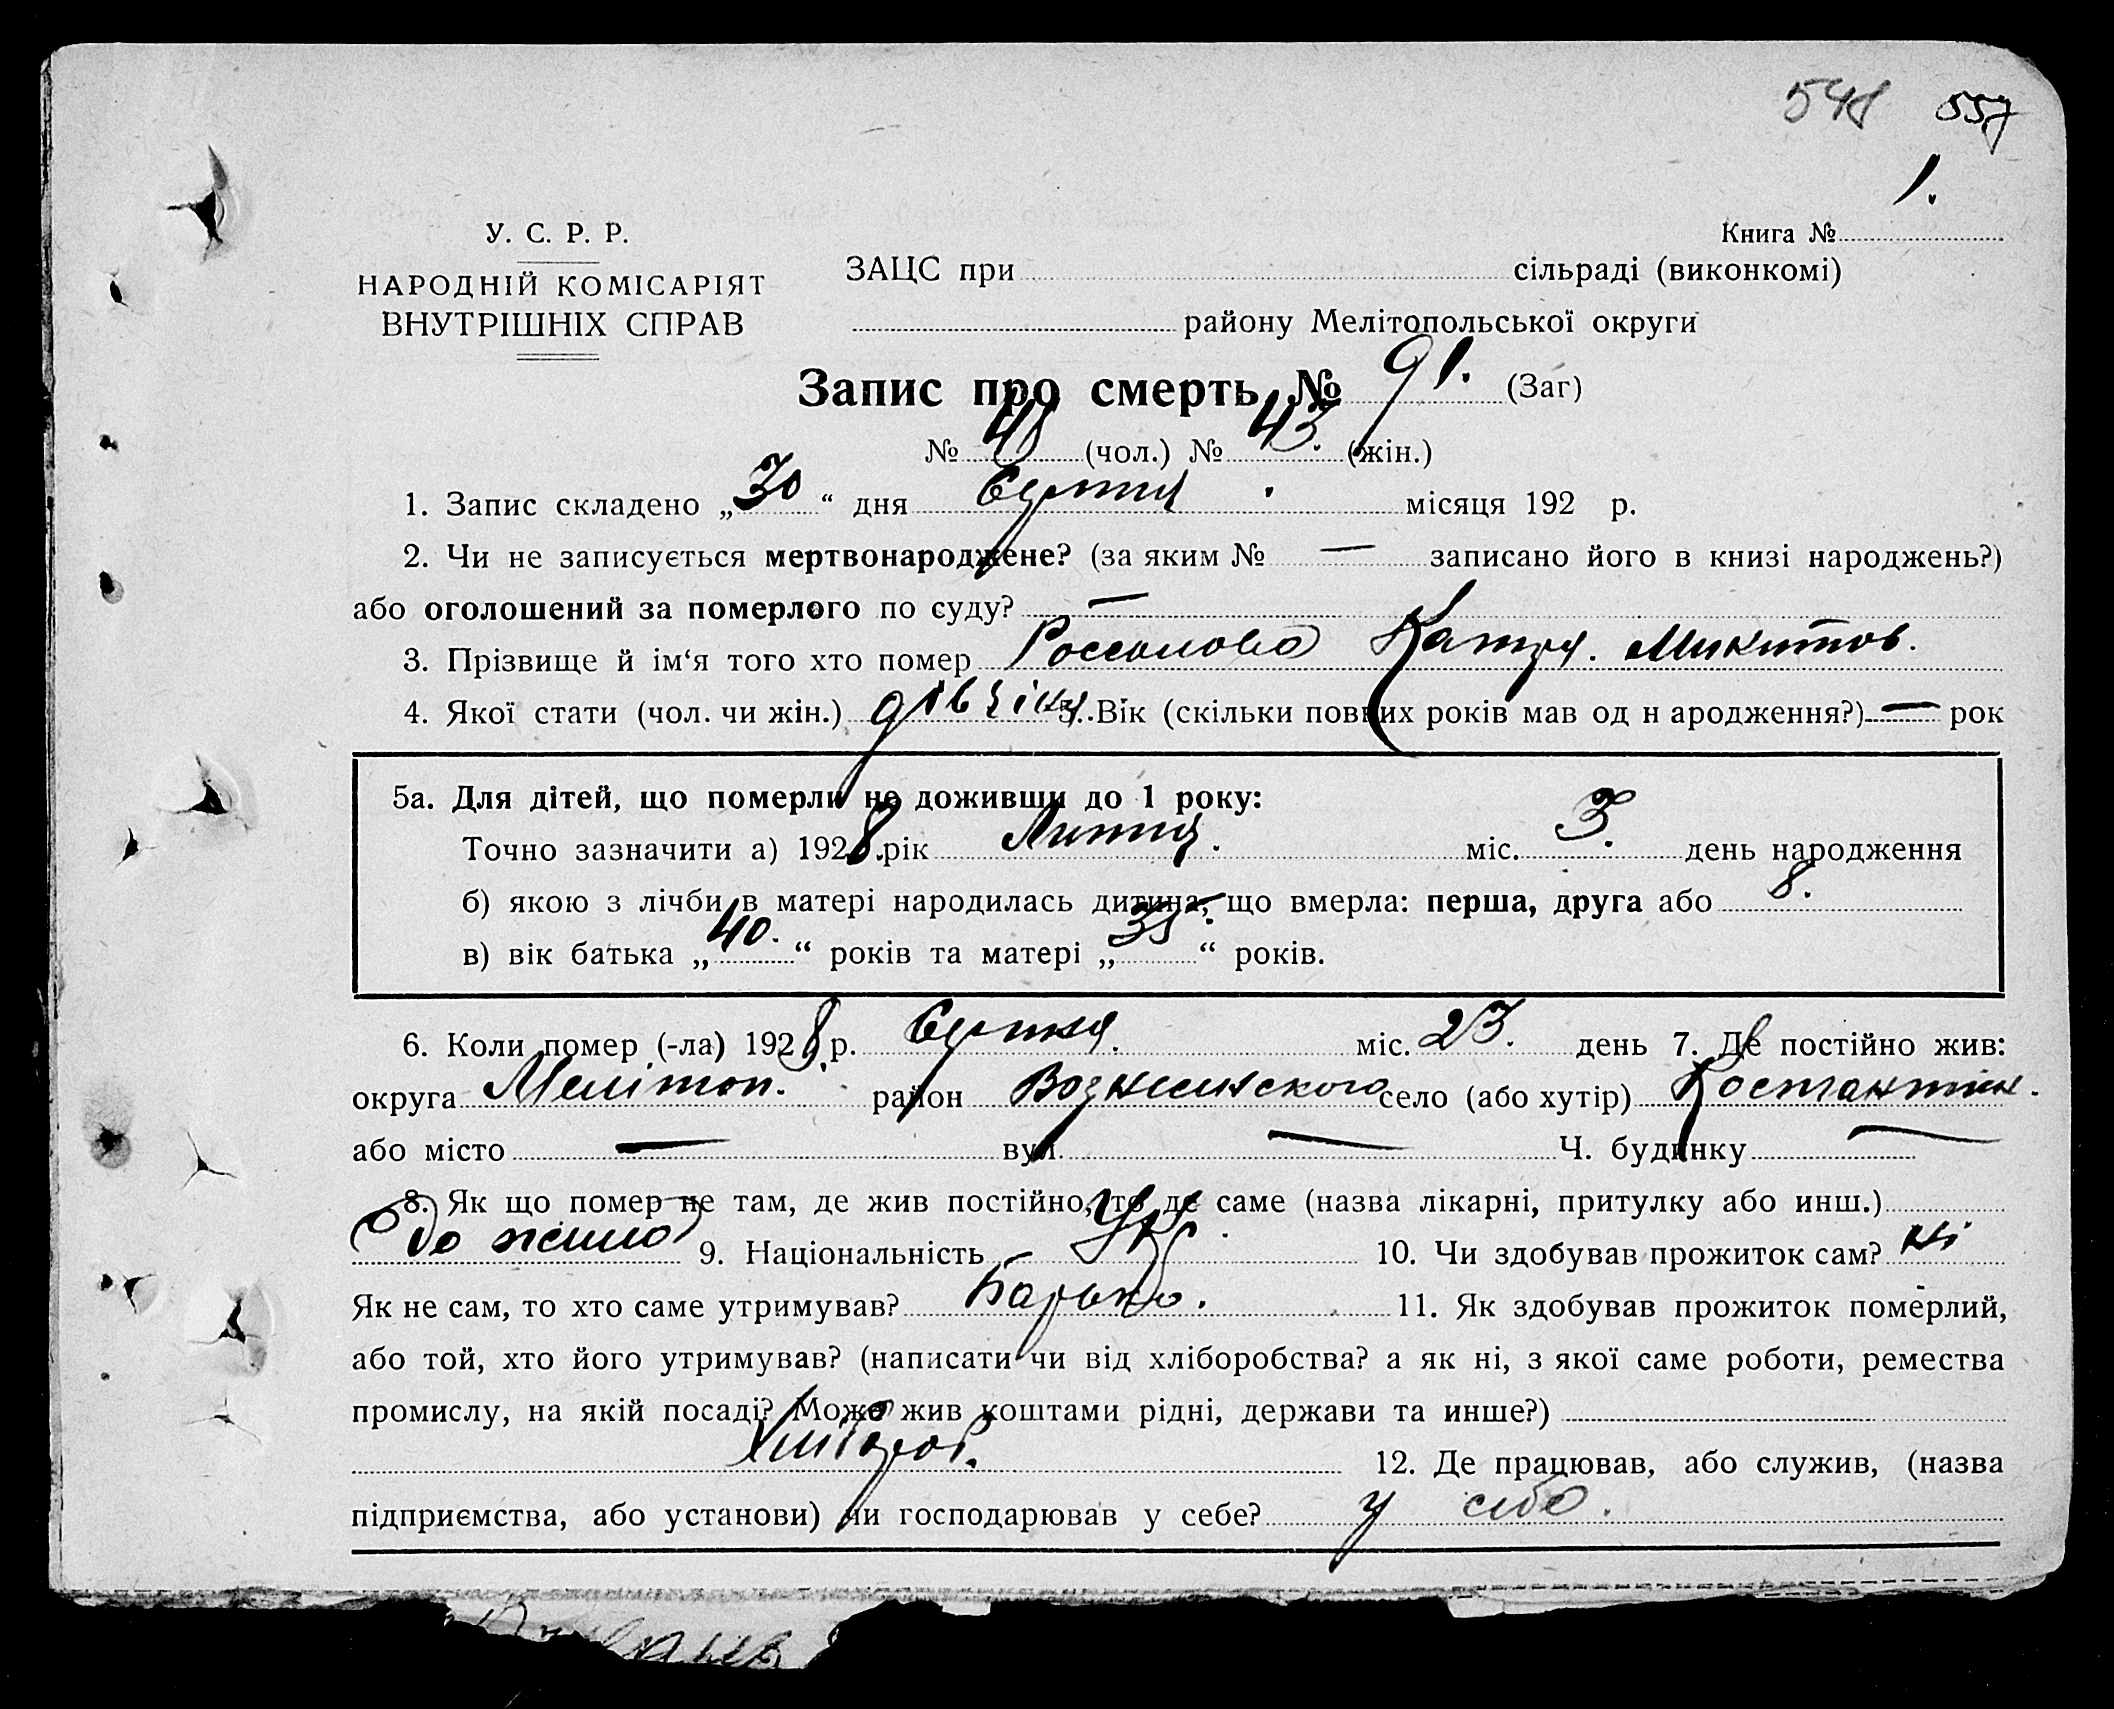 548 557
1.
У. С. Р. Р.
Книга №
НАРОДНІЙ КОМІСАРІЯТ
ВНУТРІШНІХ СПРАВ
ЗАЦС при сільраді (виконкомі)
району Мелітопольської округи
Запис про смерть № 91. (Заг)
№ 48 (чол.) № 43. (жін.)
1. Запис складено „30“ дня Серпня. місяця 192 р.
2. Чи не записується мертвонароджене? (за яким № — записано його в книзі народжень?)
або оголошений за померлого по суду? —
3. Прізвище й ім‘я того хто помер Россолова Катря. Микитов.
4. Якої стати (чол. чи жін.) дівчіна 5. Вік (скільки повних років мав од н ародження?) — рок
5а. Для дітей, що померли не доживши до 1 року:
Точно зазначити а) 1928 рік Липня. міс. 3. день народження
б) якою з лічби в матері народилась дитина, що вмерла: перша, друга або 8.
в) вік батька „40.“ років та матері „35.“ років.
6. Коли помер (-ла) 1928 р. Серпня. міс. 23. день 7. Де постійно жив:
округа Мелітоп. район Вознесенского село (або хутір) Костантин.
або місто — вул. — Ч. будинку —
8. Як що помер не там, де жив постійно, то де саме (назва лікарні, притулку або инш.)
9. Національність Укр. 10. Чи здобував прожиток сам? ні
Як не сам, то хто саме утримував? Батько. 11. Як здобував прожиток померлий,
або той, хто його утримував? (написати чи від хліборобства? а як ні, з якої саме роботи, ремества
промислу, на якій посаді? Може жив коштами рідні, держави та инше?)
Хлібороб. 12. Де працював, або служив, (назва
підприємства, або установи) чи господарював у себе? у себе.